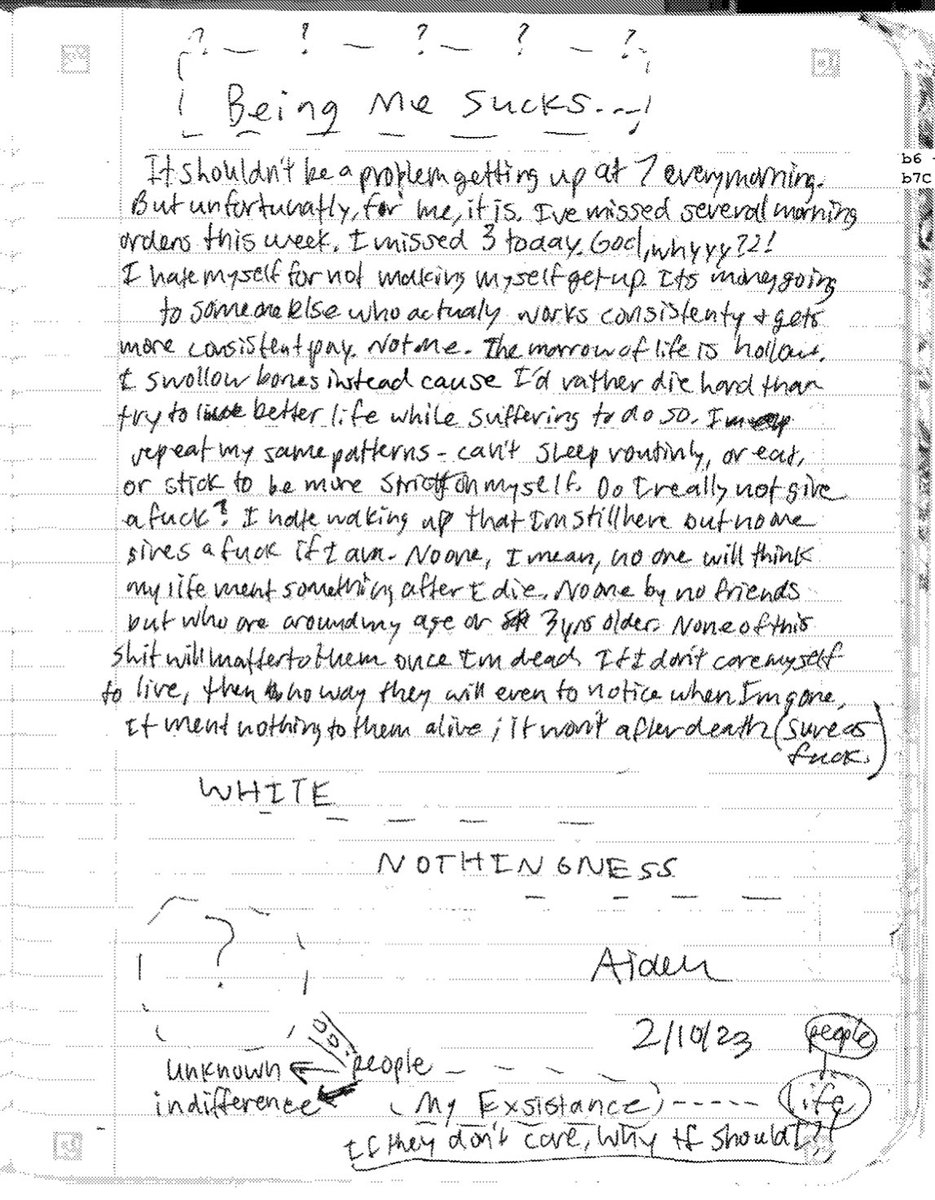 ? ! ? ? ?
Being Me Sucks...
b6
b7C
It shouldn't be a problem getting up at 7 every morning.
But unfortunatly, for me, it is. I've missed several morning
orders this week. I missed 3 today. God, whyyy??!
I hate myself for not making myself get up. Its money going
to someone else who actualy works consistenty & gets
more consistent pay. Not me. The marrow of life is hollow.
I swollow bones instead cause I'd rather die hard than
try to better life while suffering to do so. I
repeat my same patterns - can't sleep routinly, or eat,
or stick to be more strict on myself. Do I really not give
a fuck? I hate waking up that I'm still here but no one
gives a fuck if I am. No one, I mean, no one will think
my life ment something after I die. No one by no friends
but who are around my age or 3 yrs older. None of this
shit will matter to them once I'm dead. If I don't care myself
to live, then no way they will even to notice when I'm gone,
It ment nothing to them alive; it won't after death (sure as
fuck.)
WHITE
NOTHINGNESS
?
Aiden
2/10/23 people
unknown people
indifference (My Exsistance) life
If they don't care, why should I?!